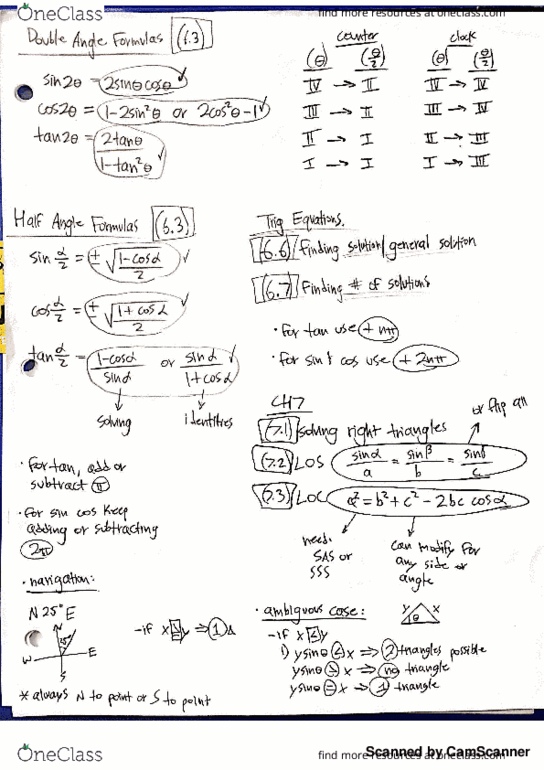 OneClass
find more resources at oneclass.com
Double Angle Formulas (6.3)
sin2θ = 2sinθcosθ ✓
cos2θ = 1-2sin²θ or 2cos²θ-1 ✓
tan2θ = 2tanθ / 1-tan²θ ✓
counter
(θ) (θ/2)
IV → II
III → II
II → I
I → I
clock
(θ) (θ/2)
IV → IV
III → IV
II → III
I → III
Half Angle Formulas (6.3)
sin α/2 = ± √(1-cosα / 2) ✓
cos α/2 = ± √(1+cosα / 2) ✓
tan α/2 = 1-cosα / sinα or sinα / 1+cosα ✓
↓ solving
↓ identities
· for tan, add or
subtract π
· for sin cos keep
adding or subtracting
2π
· navigation:
N 25° E
25°
W E
S
* always N to point or S to point
Trig Equations.
(6.6) finding solution/general solution
(6.7) Finding # of solutions
· for tan use + nπ
· for sin & cos use + 2nπ
CH7
or flip all
(7.1) solving right triangles
(7.2) LOS sinα / a = sinβ / b = sinγ / c
(7.3) LOC a² = b² + c² - 2bc cosα
need
SAS or
SSS
can modify for
any side or
angle
· ambiguous case:
y x
θ
-if x ≥ y ⇒ 1 Δ
-if x < y
1) ysinθ < x ⇒ 2 triangles possible
ysinθ > x ⇒ no triangle
ysinθ = x ⇒ 1 triangle
OneClass
find more resources at oneclass.com
Scanned by CamScanner